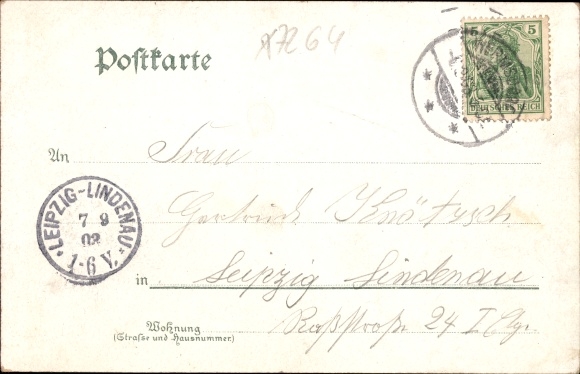 x7264
Postkarte
5
DEUTSCHES REICH
An Frau
Gertrud Knötzsch
LEIPZIG-LINDENAU
7 9
02
1-6 V.
in Leipzig Lindenau
Wohnung
(Straße und Hausnummer.)
24 I Etg.